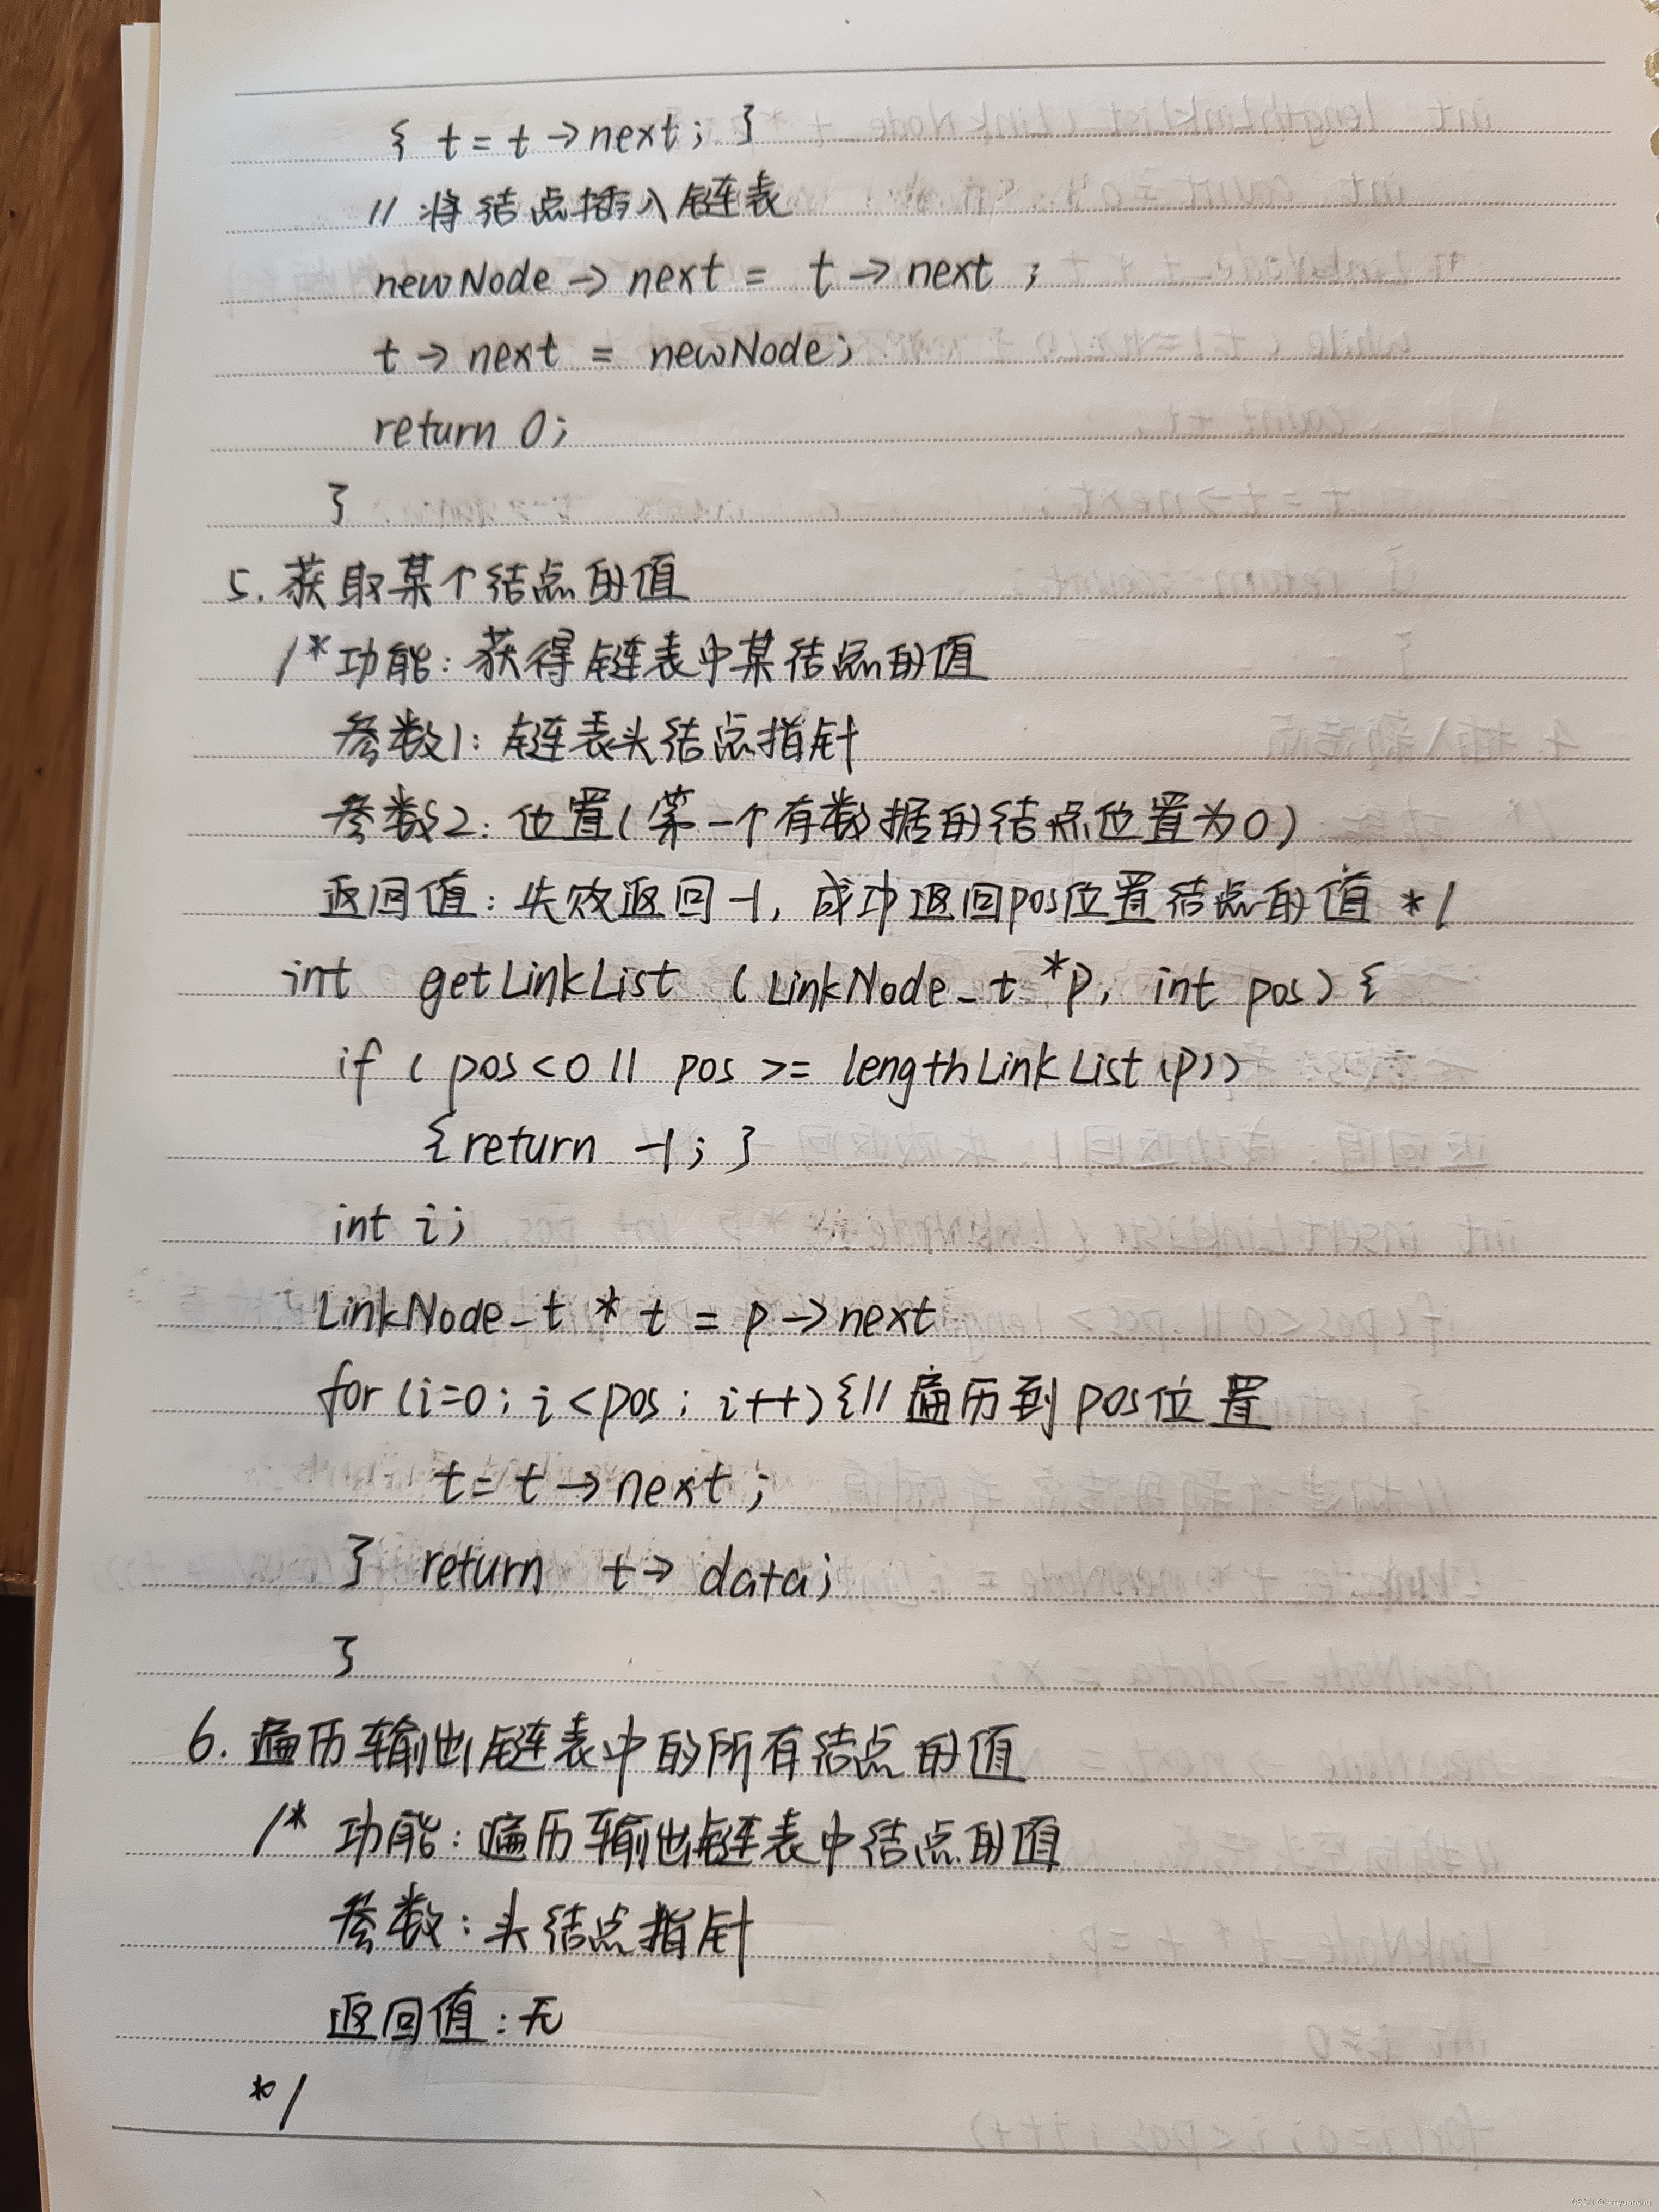 { t = t → next; }
// 将结点插入链表
newNode → next = t → next ;
t → next = newNode;
return 0;
}
5. 获取某个结点的值
/* 功能: 获得链表中某结点的值
参数1: 链表头结点指针
参数2: 位置(第一个有数据的结点位置为0)
返回值: 失败返回-1, 成功返回pos位置结点的值 */
int getLinkList (LinkNode_t *p, int pos) {
if ( pos<0 || pos >= lengthLinkList(p))
{return -1; }
int i;
LinkNode_t * t = p → next
for (i=0; i<pos; i++) {// 遍历到pos位置
t = t → next ;
} return t → data;
}
6. 遍历输出链表中的所有结点的值
/* 功能: 遍历输出链表中结点的值
参数: 头结点指针
返回值: 无
*/
CSDN @iamyuanchu